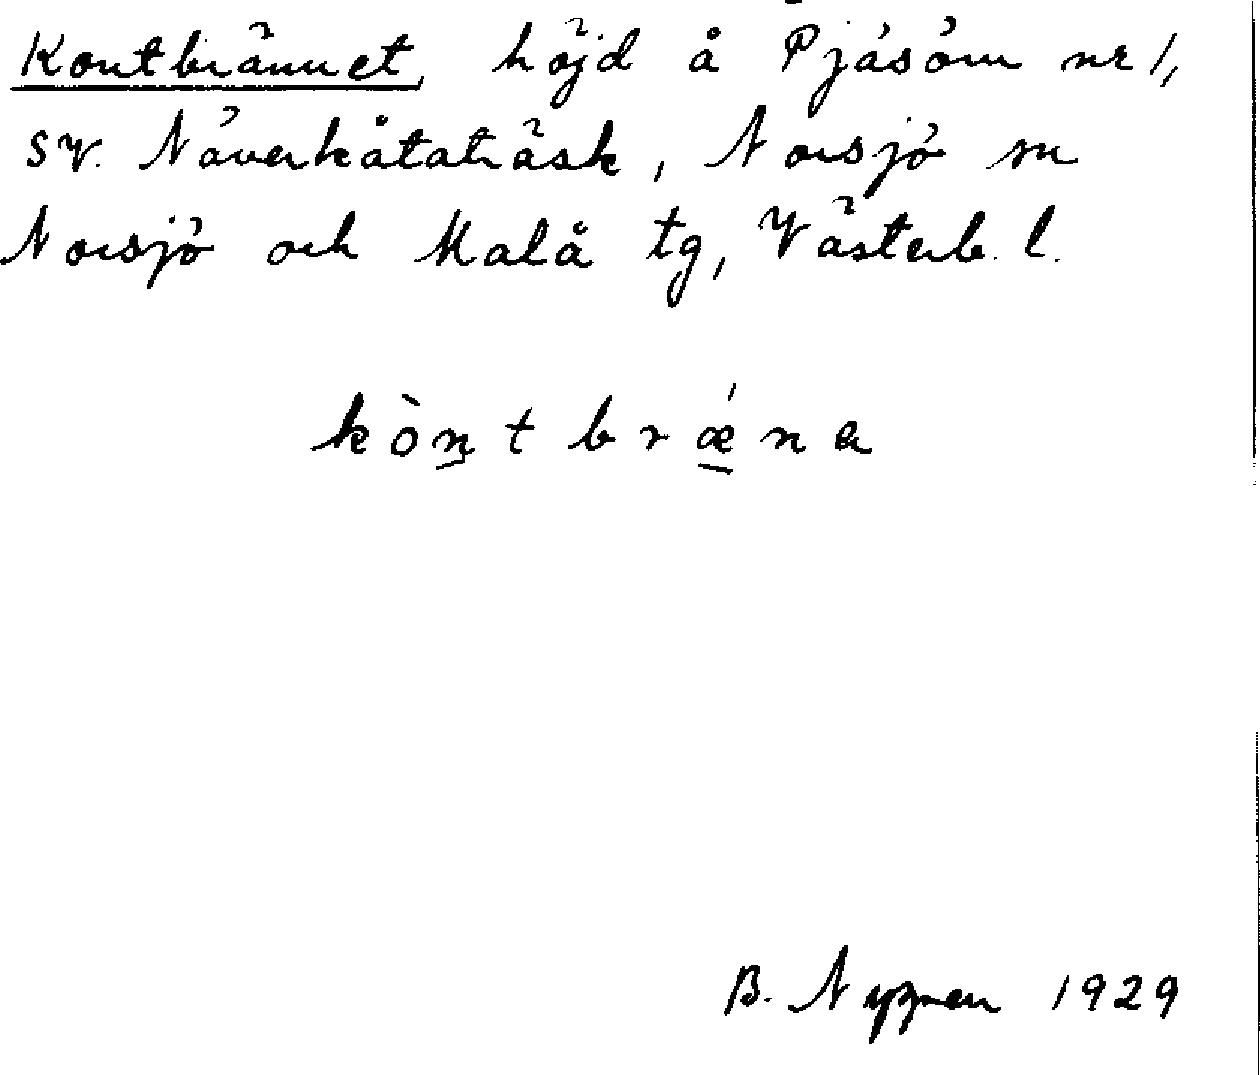 Kontbrännet, höjd å Pjäsörn nr 1,
SV. Näverkåtaträsk, Norsjö sn
Norsjö och Malå tg, Västerb. l.
kòntbrǽna
B. Nygren 1929